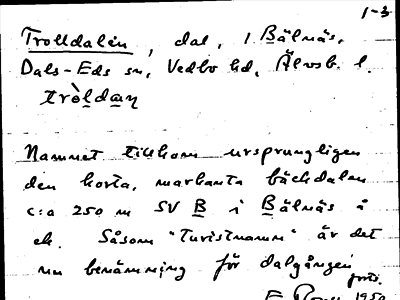 1-3
Trolldalen, dal, i Bälnäs,
Dals-Eds sn, Vedbo hd, Älvsb. l.
tròldaɳ
Namnet tillkom ursprungligen
den korta, markanta bäckdalen
c:a 250 m SV B i Bälnäs å
ek. Såsom "turistnamn" är det
nu benämning för dalgången
forts.
1950